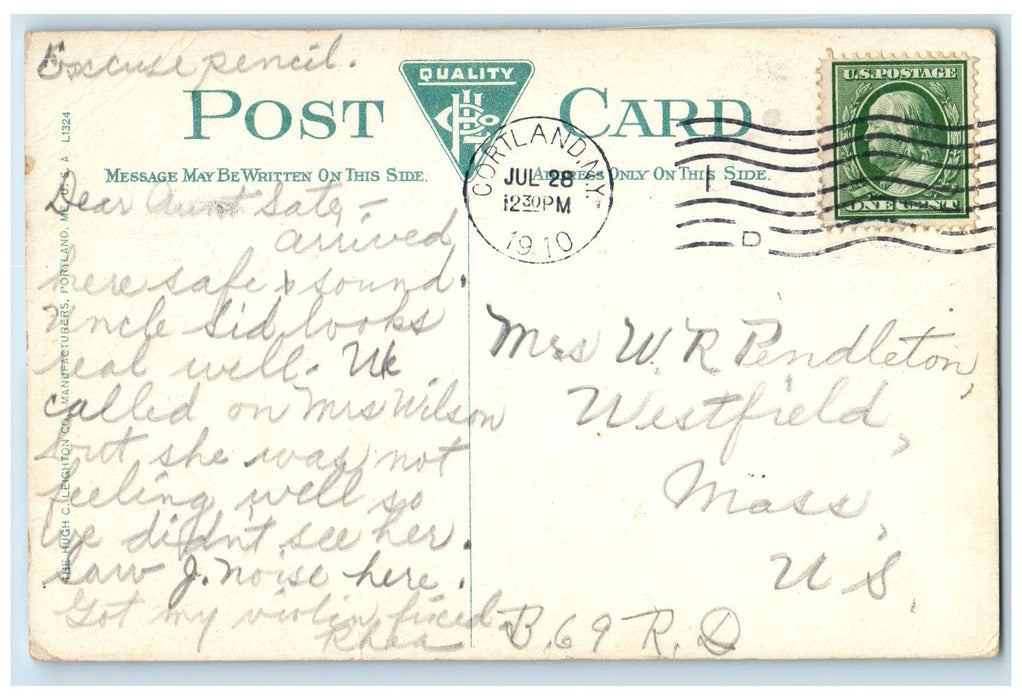 Excuse pencil.
QUALITY
POST CARD
MESSAGE MAY BE WRITTEN ON THIS SIDE.
ADDRESS ONLY ON THIS SIDE.
THE HUGH C. LEIGHTON CO., MANUFACTURERS, PORTLAND, ME., U. S. A L1324
CORTLAND, N.Y.
JUL 28
12 30 PM
1910
D
U.S. POSTAGE
ONE CENT
Dear Aunt
arrived
here safe & sound.
Uncle Sid looks
real well. We
called on Mrs Wilson
but she was not
feeling well so
we didnt see her.
Saw J. here.
Got my violin fixed.
Rhea
Mrs W. R. Pendleton,
Westfield,
Mass,
U S.
B. 69 R. D